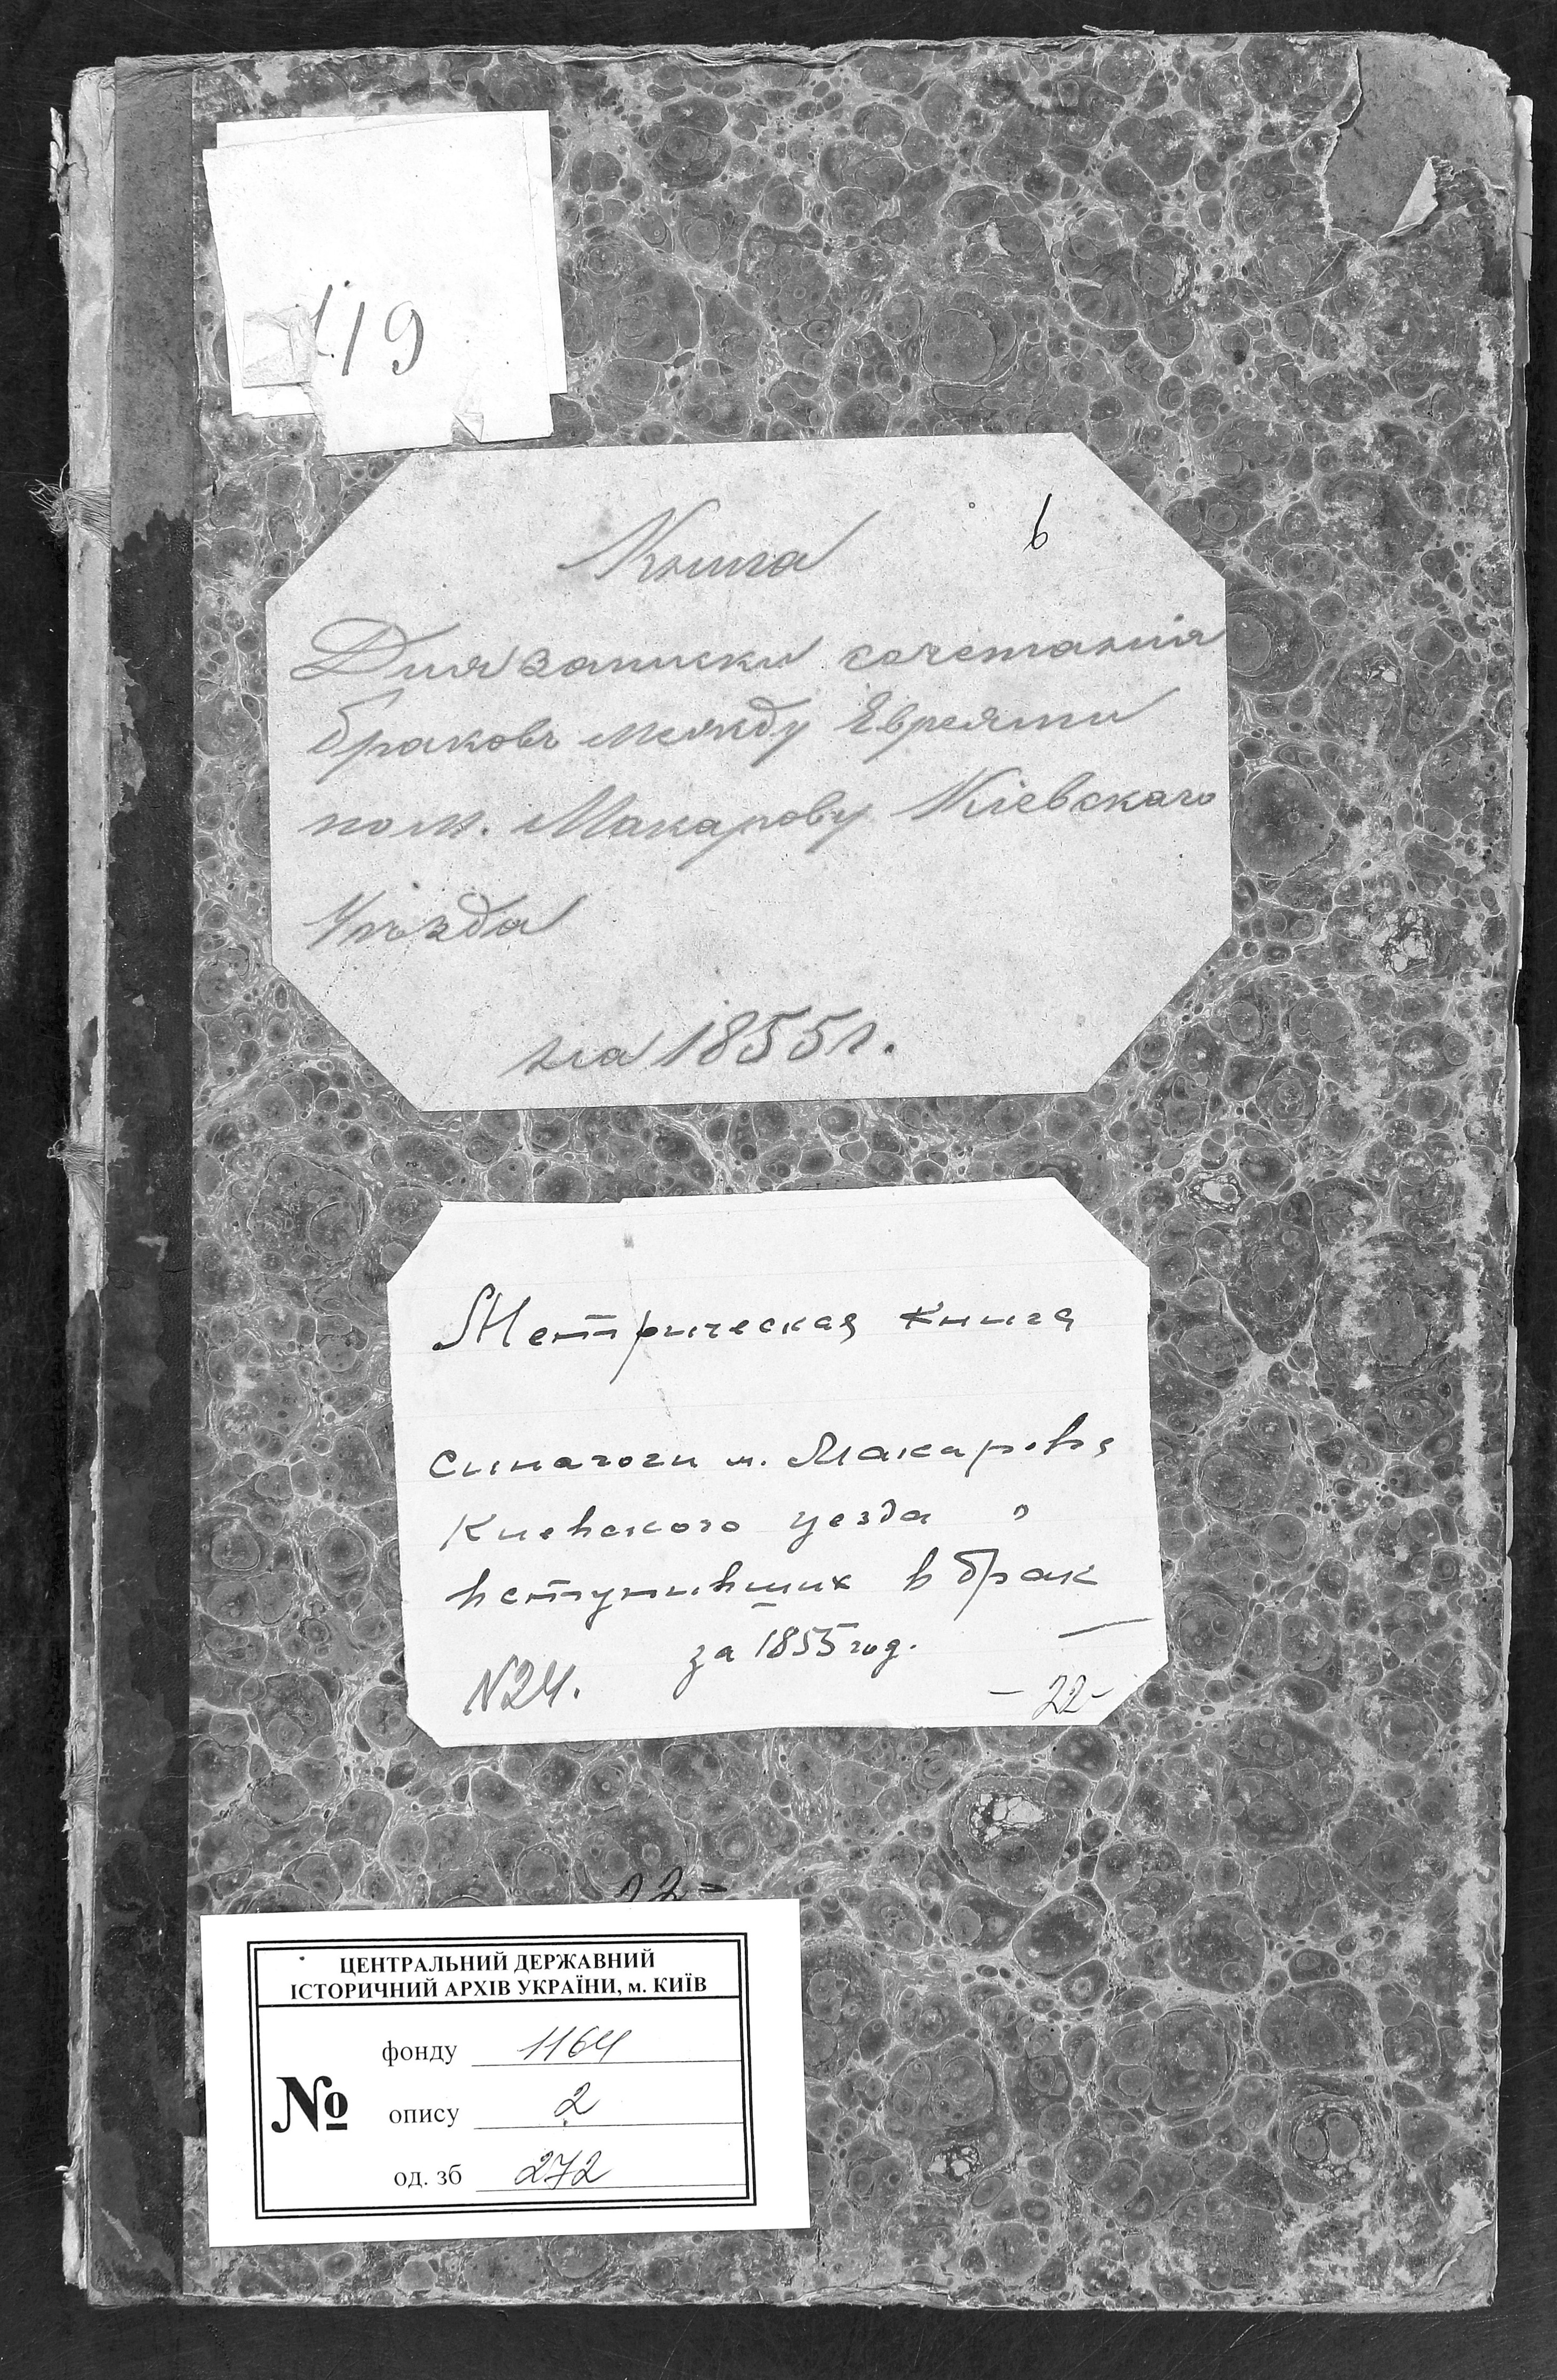 119
6
Книга
Для записки сочетанія
браковъ между Евреями
по м. Макарову Кіевскаго
Уѣзда
на 1855 г.
Метрическая книга
синагоги м. Макарова
Киевского уезда о
вступивших в брак
за 1855 год.
N24.
- 22 -
22 =
ЦЕНТРАЛЬНИЙ ДЕРЖАВНИЙ
ІСТОРИЧНИЙ АРХІВ УКРАЇНИ, м. КИЇВ
№
фонду 1164
опису 2
од. зб 272